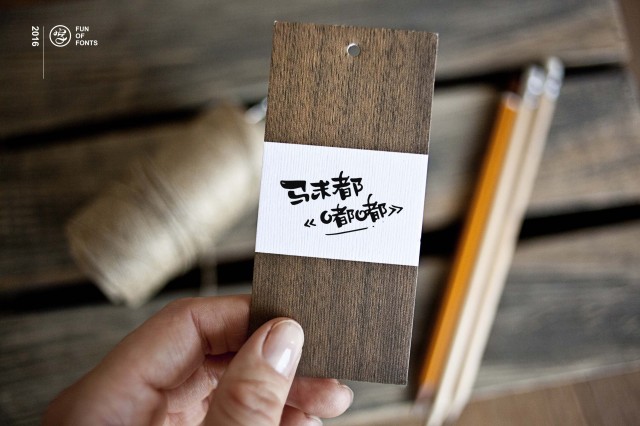 2016
FUN
OF
FONTS
马未都
《嘟嘟》